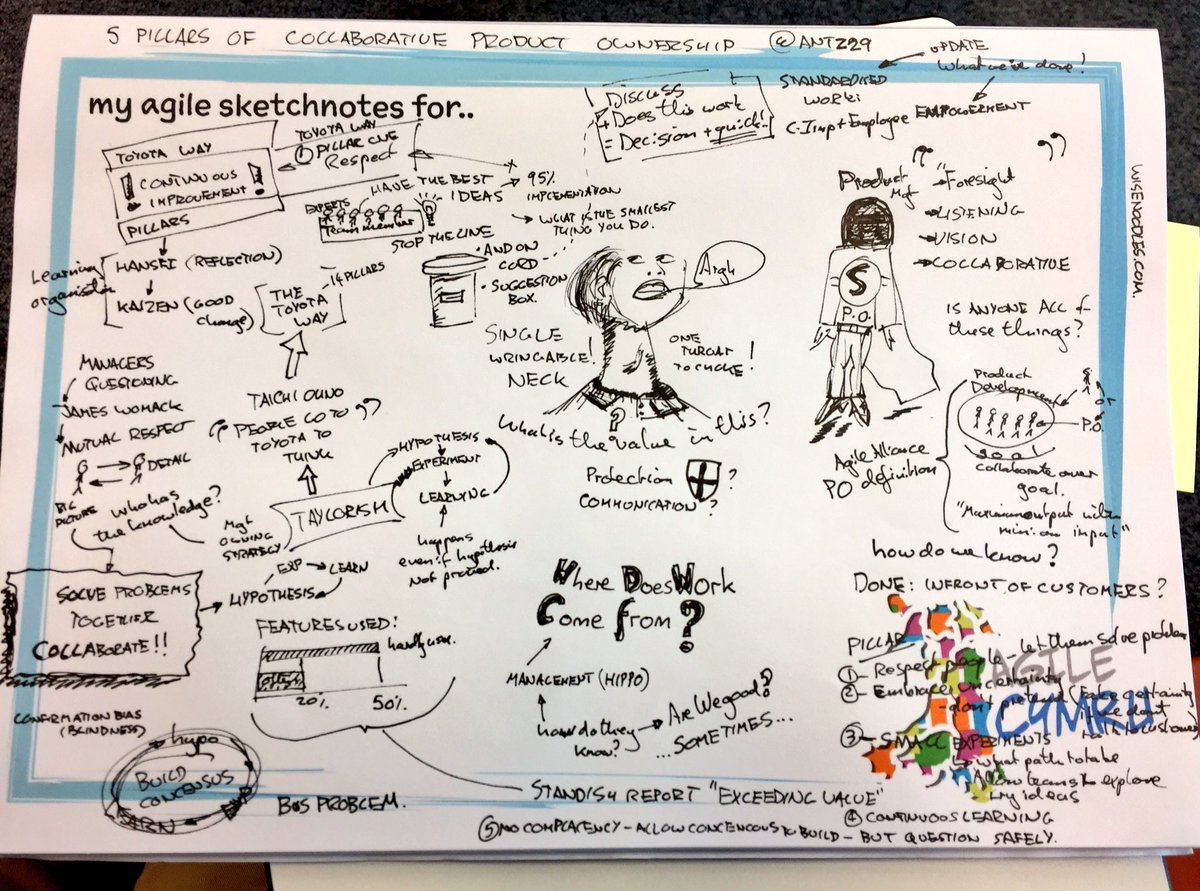 5 PILLARS OF COLLABORATIVE PRODUCT OWNERSHIP @ANTZ29
my agile sketchnotes for..
TOYOTA WAY
! CONTINUOUS
IMPROVEMENT !
PILLARS
TOYOTA WAY
① PILLAR ONE
Respect
HAVE THE BEST
IDEAS
95%
IMPLEMENTATION
EXPERTS
Team member
WHAT IS THE SMALLEST
THING YOU DO.
DISCUSS
+ Does this work
= Decision + quick!
STANDARDISED
WORK
UPDATE
What we've done!
C-Imp + Employee EMPOWERMENT
WISENOODLES.COM.
Learning
organisation
HANSEI (REFLECTION)
KAIZEN (GOOD
change)
THE
TOYOTA
WAY
14 PILLARS
STOP THE LINE
• ANDON
CORD
• SUGGESTION
BOX.
Argh
SINGLE
WRINGABLE!
NECK
ONE
THROAT
TO CHOKE!
What is the value in this?
Protection ?
COMMUNICATION?
Product
Mgt
"Foresight
LISTENING
VISION
COLLABORATIVE
S
P.O.
IS ANYONE ALL of
these things?
MANAGERS
QUESTIONING
JAMES WOMACK
MUTUAL RESPECT
DETAIL
BIG
PICTURE
who has
the knowledge?
TAICHI OUNO
"PEOPLE GO TO
TOYOTA TO
THINK"
TAYLORISM
Mgt
OWNING
STRATEGY
HYPOTHESIS
EXPERIMENT
LEARNING
happens
even if hypothesis
not proved.
SOLVE PROBLEMS
TOGETHER
COLLABORATE!!
EXP → LEARN
HYPOTHESIS
FEATURES USED:
hardly used.
often
20%
50%
Agile Alliance
PO definition
Product
Development
or
P.O.
goal
collaborate over
goal.
"Maximum output with
minimum input"
how do we know?
DONE: INFRONT OF CUSTOMERS?
Where Does Work
Come From?
MANAGEMENT (HIPPO)
how do they
know?
Are We good?
...SOMETIMES...
AGILE
CYMRU
PILLAR
① - Respect people - let them solve problem
② - Embrace uncertainty
- don't pretend
③ - SMALL EXPERIMENTS
what path to take
Allow teams to explore
try ideas
④ CONTINUOUS LEARNING
⑤ NO COMPLACENCY - ALLOW CONCENCOUS to BUILD - BUT QUESTION SAFELY.
CONFIRMATION BIAS
(BLINDNESS)
hypo
BUILD
CONCENSUS
EXP
LEARN
BOS PROBLEM.
STANDISH REPORT "EXCEEDING VALUE"